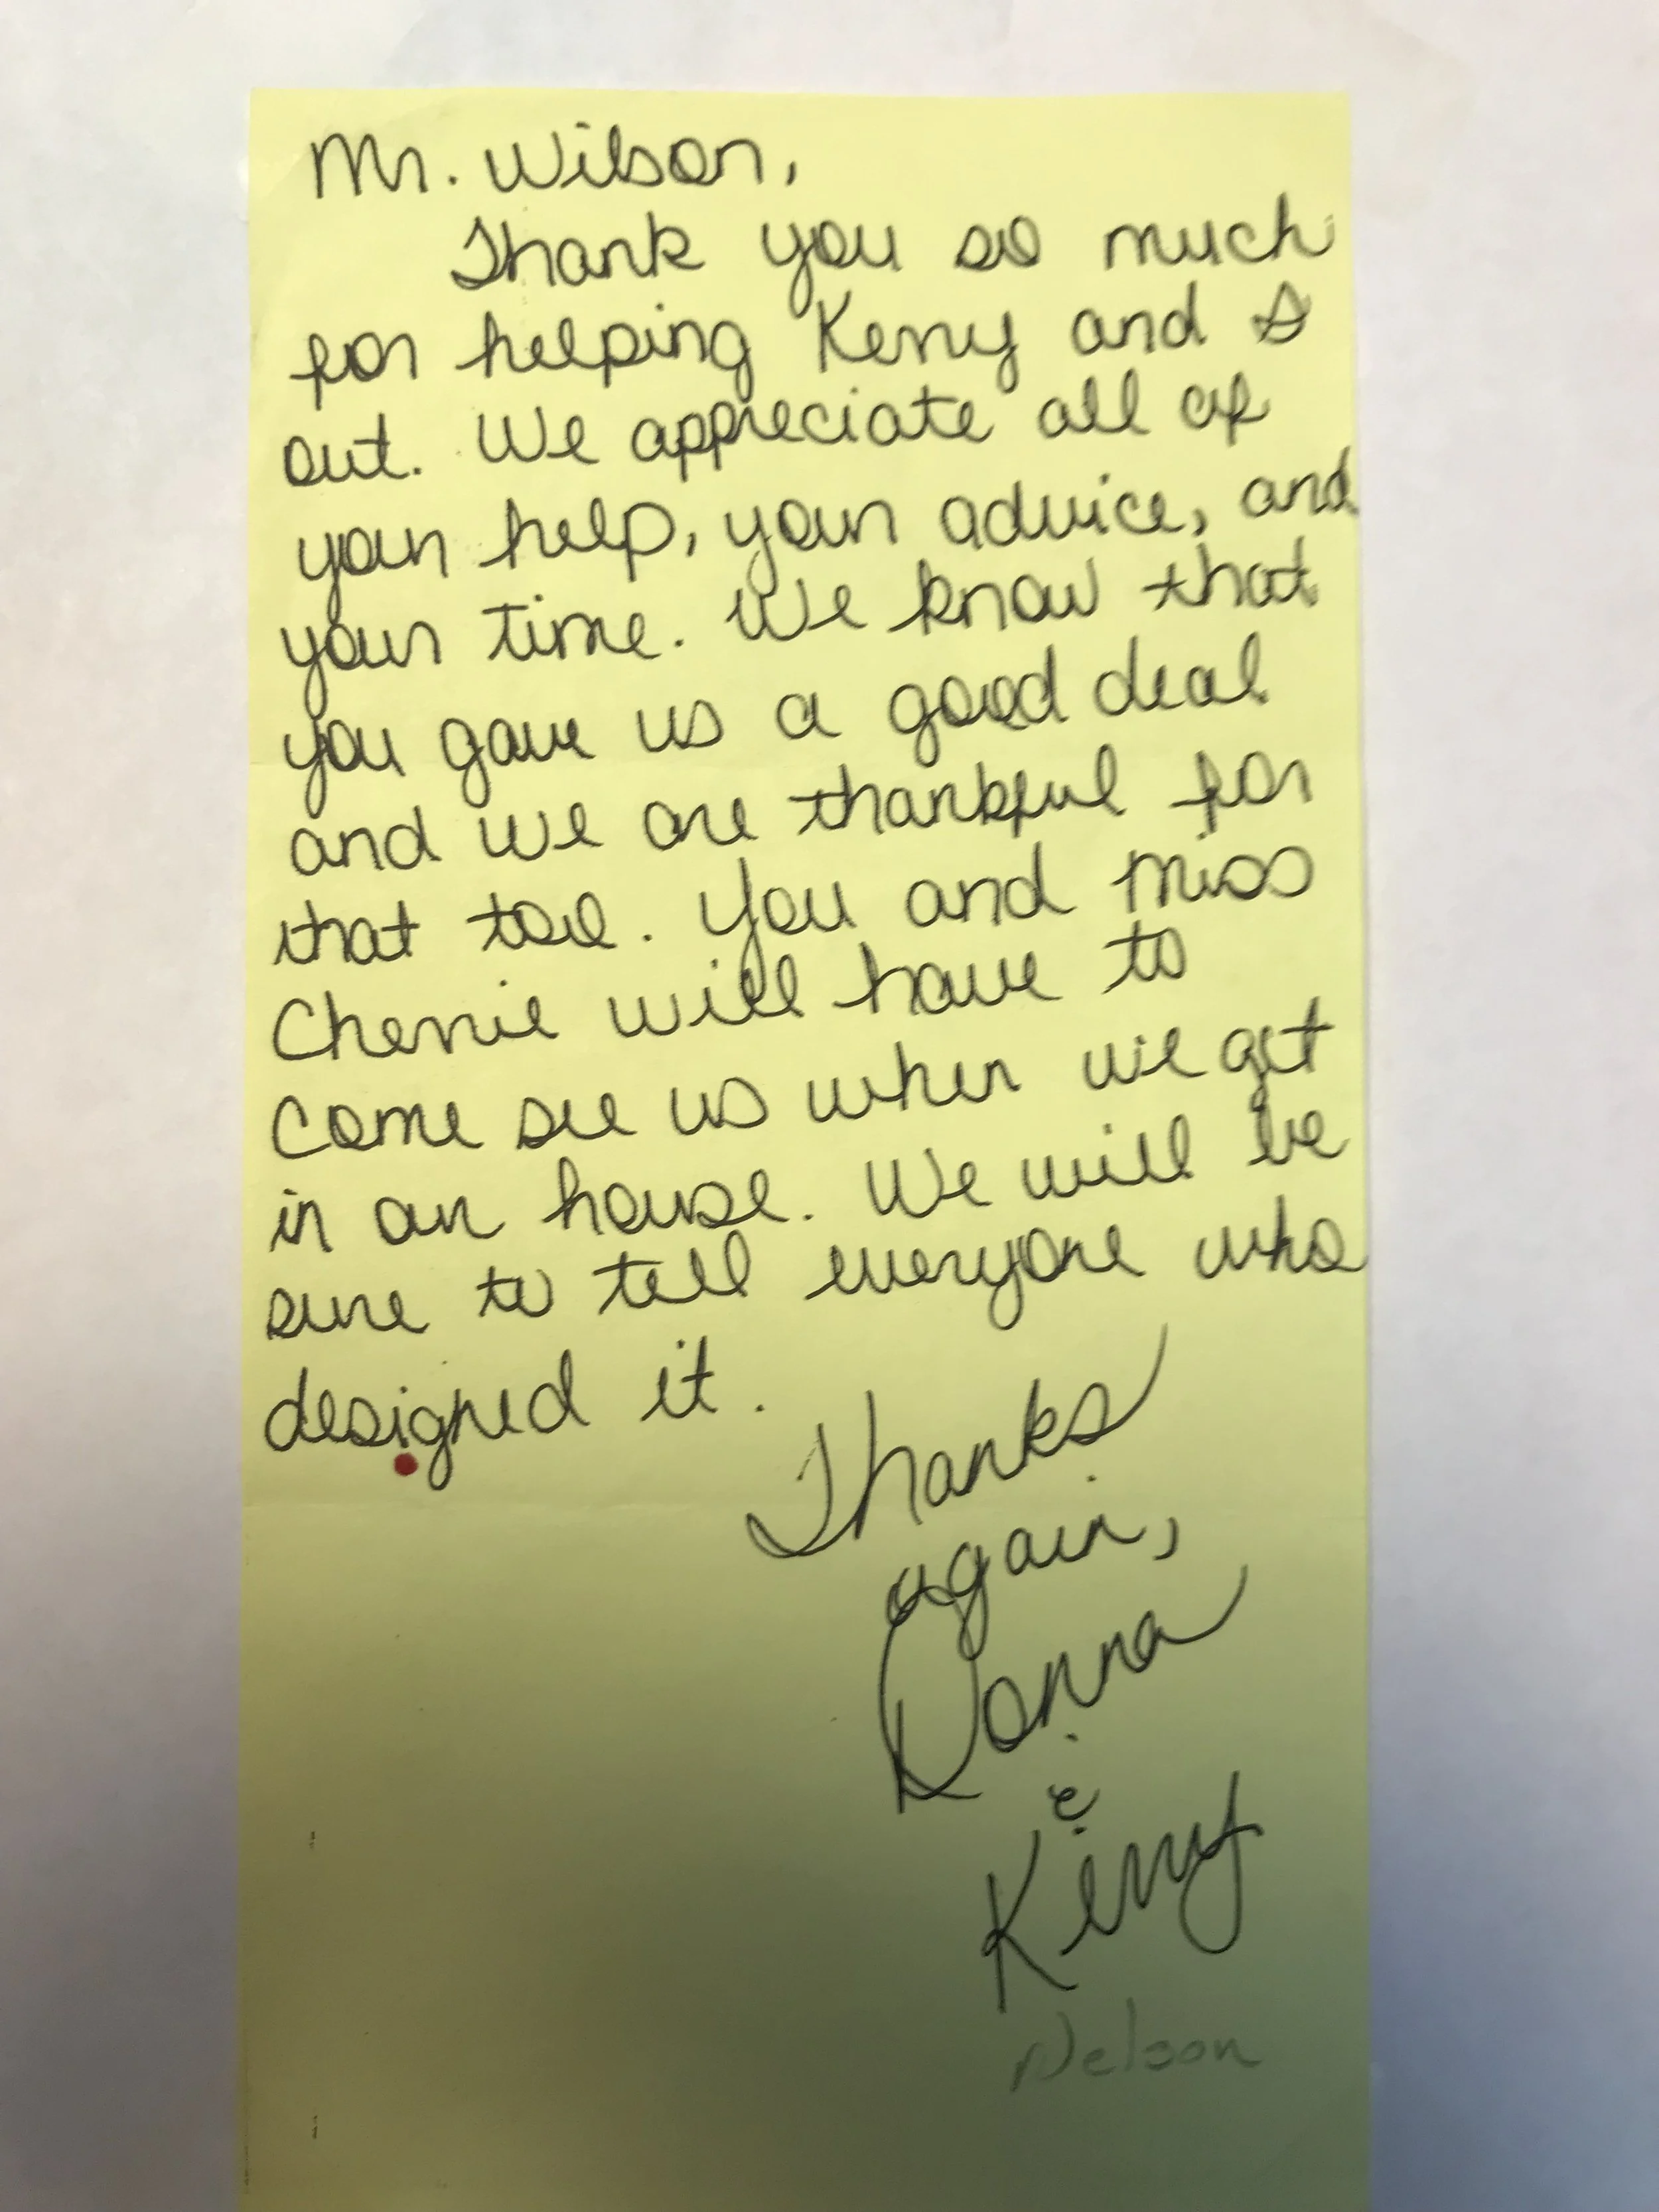 Mr. Wilson,
Thank you so much
for helping Kerry and I
out. We appreciate all of
your help, your advice, and
your time. We know that
you gave us a good deal
and we are thankful for
that too. You and Miss
Cherrie will have to
come see us when we get
in our house. We will be
sure to tell everyone who
designed it.
Thanks
again,
Donna
&
Kerry
Nelson